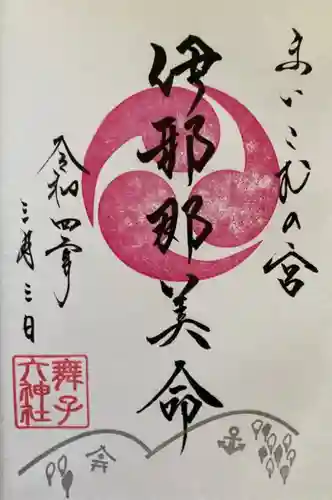 まいこむの宮
伊邪那美命
令和四年
三月三日
舞子
六神社